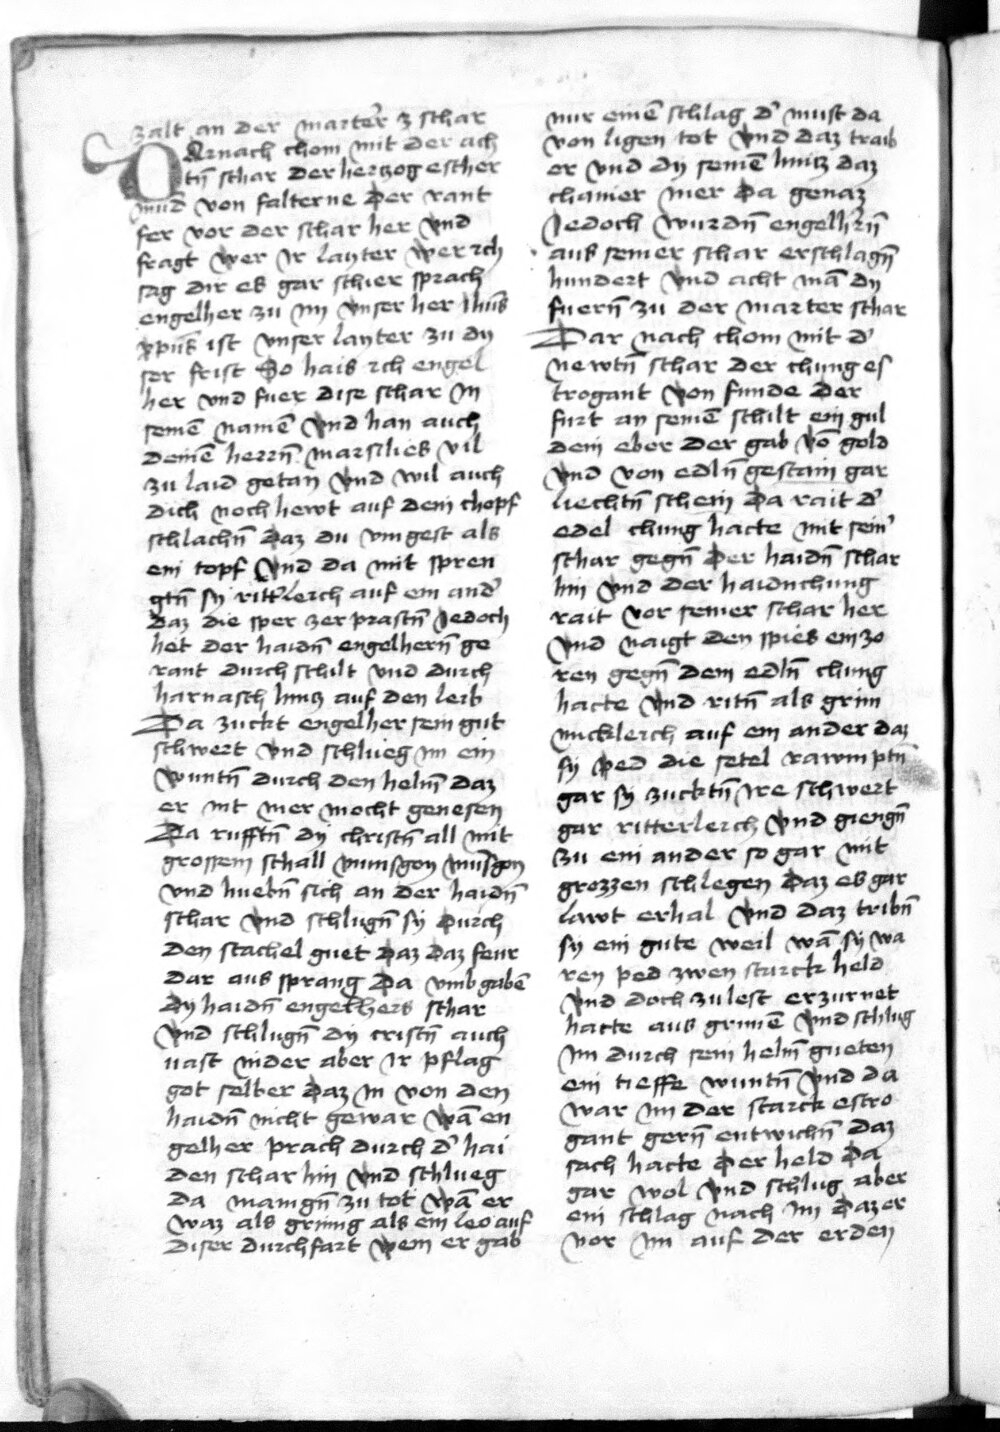 zalt an der marter̉ z schar
DArnach chom mit der ach
tn̄ schar der hertzog escher
mūd von falterne Der rant
fer vor der schar her vnd
fragt wer ir layter wer ich
sag dir es gar schier sprach
engelher zu im vnser her ihūs
xp̄us ist vnser layter zu dy
ser frist So hais ich engel
her vnd fuer dise schar in
seinē namē vnd han auch
deinē herrn̄ marsilies vil
zu laid getan vnd wil auch
dich noch hewt auf dein chopf
schlachn̄ daz du vmgest als
ein topf vnd da mit spren
gtn̄ sy ritt̉leich auf ein and̉
daz die sper zerprastn̄ Jedoch
het der haidn̄ engelhern̄ ge
rant durch schilt vnd durch
harnasch hintz auf den leib
Da zuckt engelher sein gut
schwert vnd schlueg im ein
wuntn̄ durch den helm̄ daz
er nit mer mocht genesen
Da rufftn̄ dy christn̄ all mit
grossem schall munsgoy mūsgoy
vnd huebn̄ sich an der haidn̄
schar vnd schlugn̄ sy durch
den stachel guet daz daz feur
dar aus sprang Da vmb gabē
dy haidn̄ engelhers schar
vnd schlugn̄ dy cristn̄ auch
vast nider aber ir pflag
got selber daz in von den
haidn̄ nicht gewar wā en
gelher prach durch d̉ hai
den schar hin vnd schlueg
da manign̄ zu tot wā er
waz als grimig als ein leo auf
diser durchfart wem er gab
nur einē schlag d̉ must da
von ligen tot vnd daz traib
er vnd dy seinē hintz daz
chainer mer da genaz
Jedoch wurdn̄ engelh̉rn̄
aus seiner schar erschlagn̄
hundert vnd acht mā dy
fuern̄ zu der marter schar
Dar nach chom mit d̉
newtn̄ schar der chung es
trogant von funde Der
furt an seinē schilt ein gul
dein eber der gab vō gold
vnd von edln̄ gestain gar
liechtn̄ schein Da rait d̉
edel chung hacte mit sein̉
schar gegn̄ der haidn̄ schar
hin vnd der haidnchung
rait vor seiner schar her
vnd naigt den spies ein zo
ren gegn̄ dem edln̄ chung
hacte vnd ritn̄ als grim
mickleich auf ein ander daz
sy ped die setel rawmptn̄
gar sy zucktn̄ ire schwert
gar ritterleich vnd giengn̄
zu ein ander so gar mit
grozzen schlegen daz es gar
lawt erhal vnd daz tribn̄
sy ein gute weil wā sy wa
ren ped zwen starck held
vnd doch zu lest erzurnet
hacte aus grimē vnd schlug
im durch sein helm̄ gueten
ein tieffe wuntn̄ vnd da
war im der starck estro
gant gern̄ entwichn̄ daz
sach hacte der held da
gar wol vnd schlug aber
ein schlag nach im daz er
vor im auf der erden